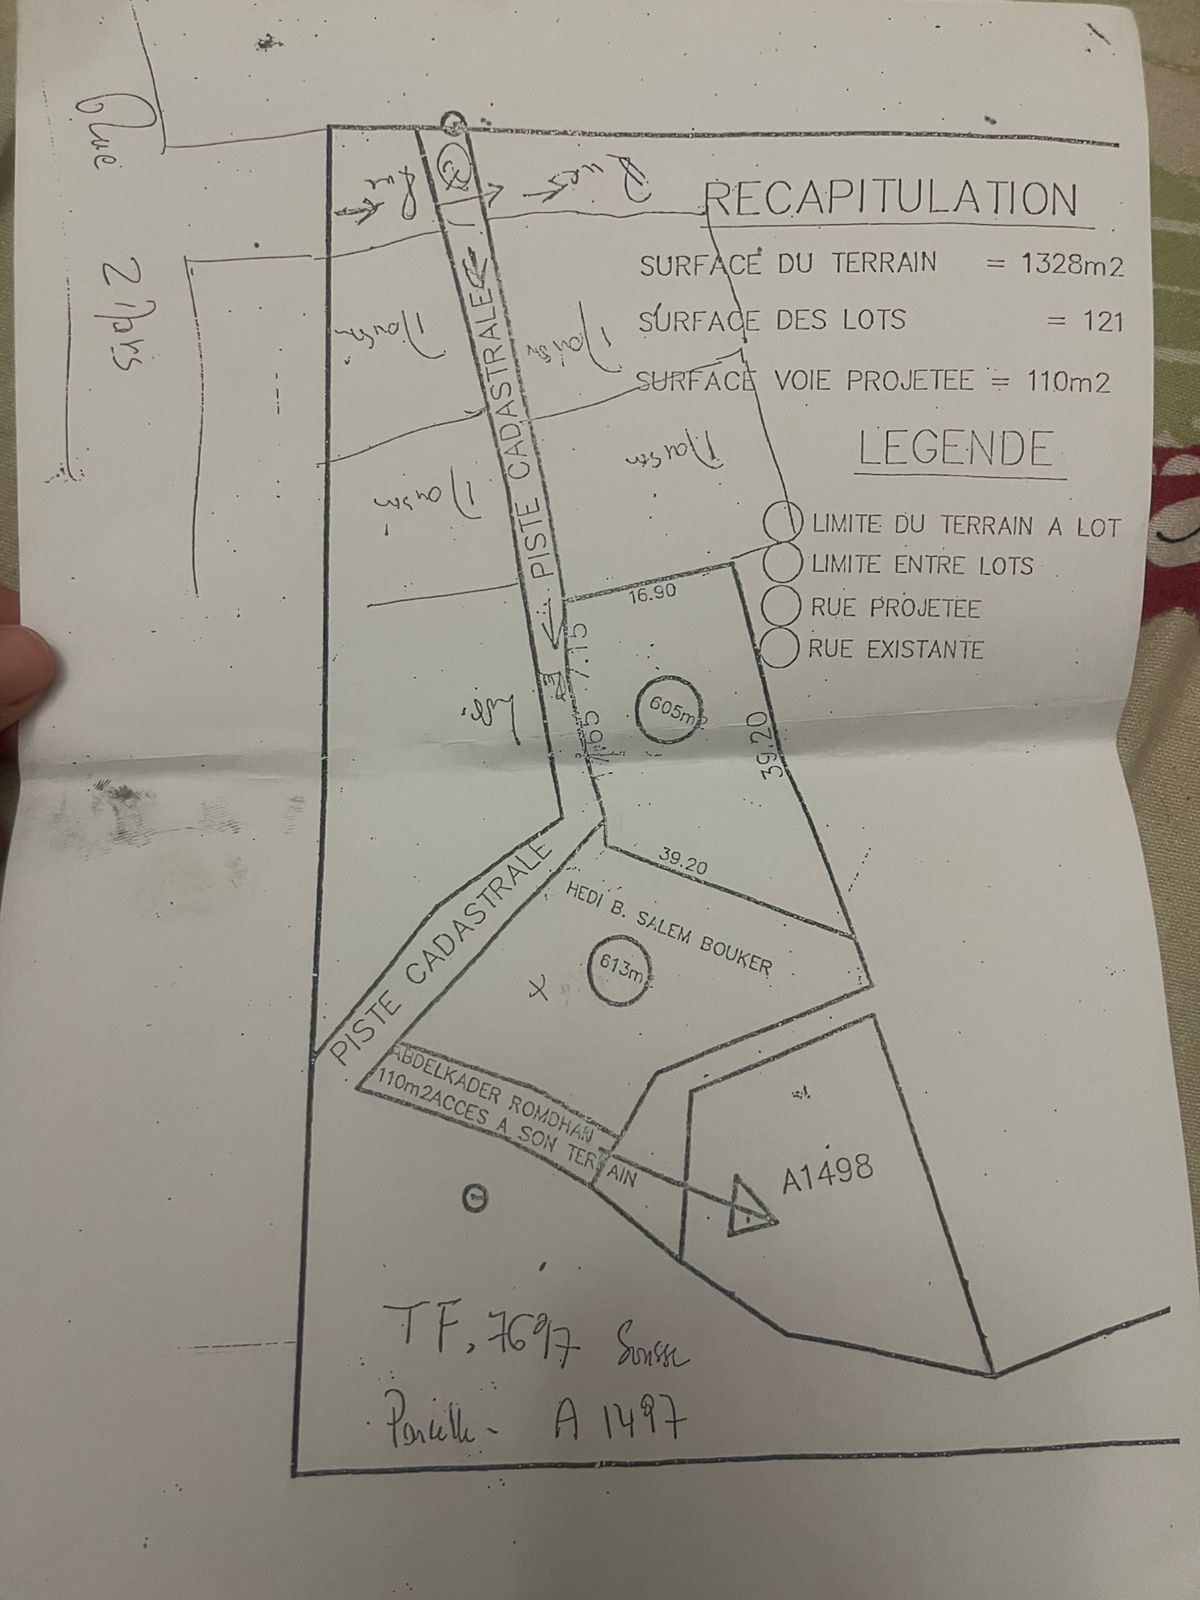 Rue
2 
Rue
Rues
RECAPITULATION
SURFACE DU TERRAIN = 1328m2
SURFACE DES LOTS = 121
SURFACE VOIE PROJETEE = 110m2
LEGENDE
LIMITE DU TERRAIN A LOT
LIMITE ENTRE LOTS
RUE PROJETEE
RUE EXISTANTE
PISTE CADASTRALE
Maison
Maison
Maison
Maison
16.90
7.15
17.65
605m2
39.20
39.20
PISTE CADASTRALE
HEDI B. SALEM BOUKER
613m
ABDELKADER ROMDHAN
110m2ACCES A SON TERRAIN
A1498
TF. 7697 Sousse
Parcelle - A 1497